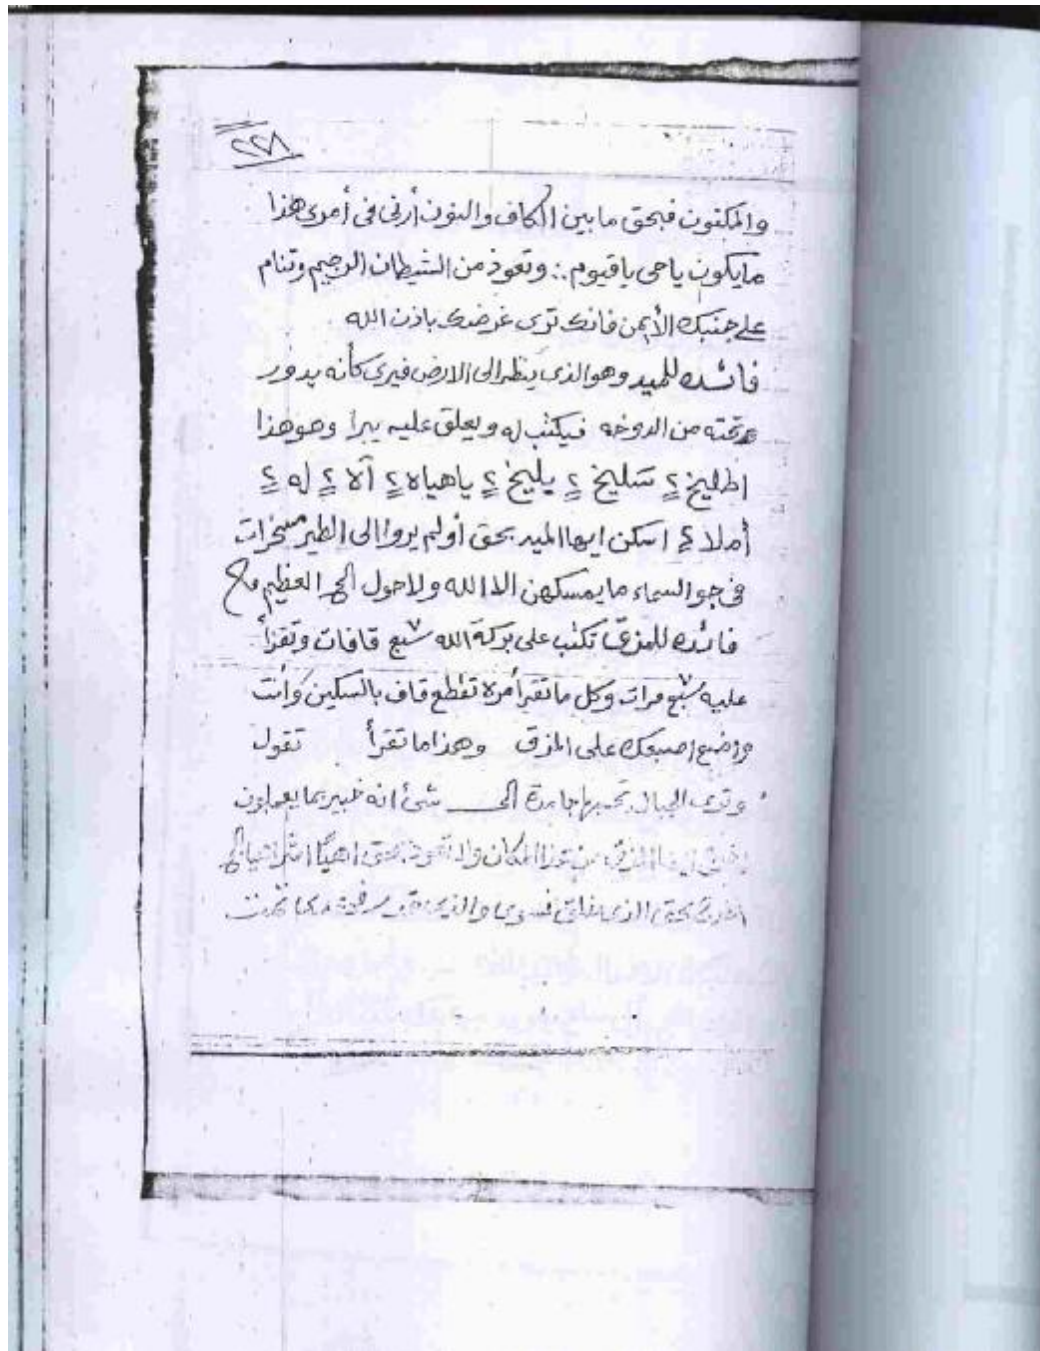 ٢٢٨
والمكنون فبحق ما بين الكاف والنون أرنى فى أمرى هذا
ما يكون ياحى ياقيوم .: وتعوذ من الشيطان الرجيم وتنام
على جنبك الأيمن فانك ترى غرضك باذن الله
فائده للميد وهو الذى ينظر الى الارض فيرى كأنه يدور
تحته من الدوخه فيكتب له ويعلق عليه يبرا وهو هذا
اطليخ ٢ شليخ ٢ يليخ ٢ ياهياه ٢ آلا ٢ له ٢
أملا ٢ اسكن ايها الميد بحق أولم يروا الى الطير مسخرات
فى جو السماء ما يمسكهن الا الله ولا حول الى العظيم
فائده للمذق تكتب على بركة الله سبع قافات وتقرأ
عليه سبع مرات وكل ما تقرأ مرة تقطع قاف بالسكين وأنت
واضع اصبعك على المذق وهذا ما تقرأ تقول
وترى الجبال تحسبها جامدة الى شئ انه خبير بما يعملون
من هذا المكان ولا تعود بحق اهيا اشراهيا
بحق الذى خلق فسوى والذى تمت